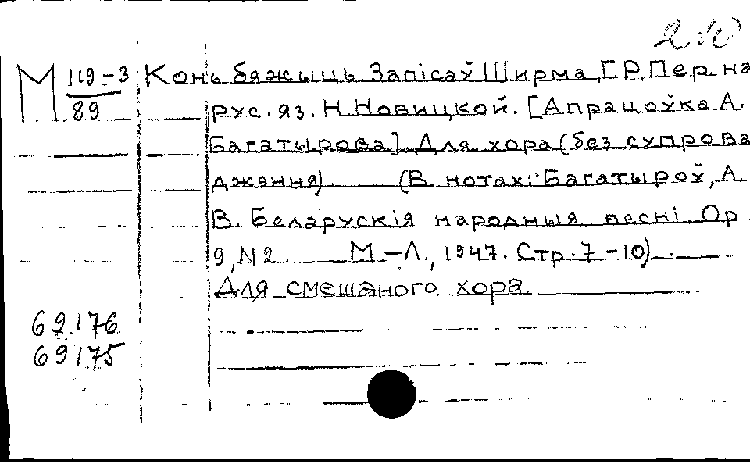 М 119-3
89
Конь бяжыць Запісаў Ширма, Г.Р. Пер. на
рус. яз. Н. Новицкой. [Апрацоўка А.
Багатырова] Для хора (без супрова
джэння) (В нотах: Багатыроў, А.
В. Беларускія народныя песні. Ор
9, N 2 М.-Л., 1947. Стр. 7-10)
Для смешаного хора
69176
69175